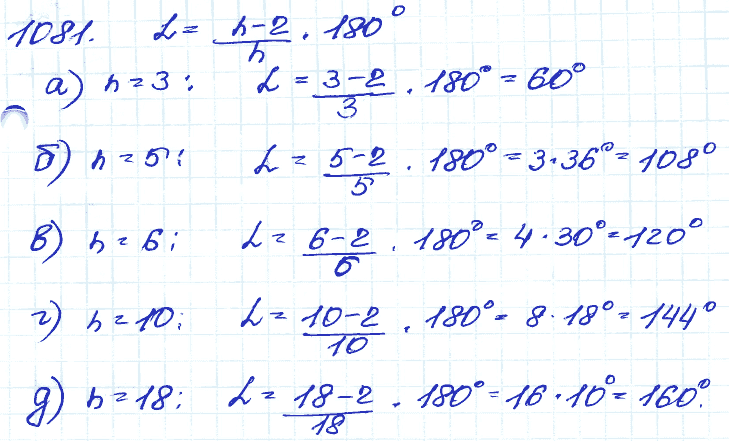 1081. α = (n-2)/n · 180°
а) n = 3; α = (3-2)/3 · 180° = 60°
б) n = 5; α = (5-2)/5 · 180° = 3·36° = 108°
в) n = 6; α = (6-2)/6 · 180° = 4·30° = 120°
г) n = 10; α = (10-2)/10 · 180° = 8·18° = 144°
д) n = 18; α = (18-2)/18 · 180° = 16·10° = 160°.